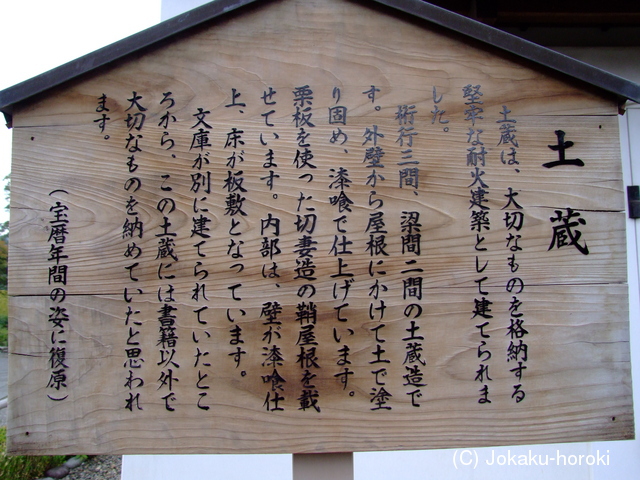 土蔵
土蔵は、大切なものを格納する
堅牢な耐火建築として建てられま
した。
桁行三間、梁間二間の土蔵造で
す。外壁から屋根にかけて土で塗
り固め、漆喰で仕上げています。
栗板を使った切妻造の鞘屋根を載
せています。内部は、壁が漆喰仕
上、床が板敷となっています。
文庫が別に建てられていたとこ
ろから、この土蔵には書籍以外で
大切なものを納めていたと思われ
ます。
（宝暦年間の姿に復原）
(C) Jokaku-horoki